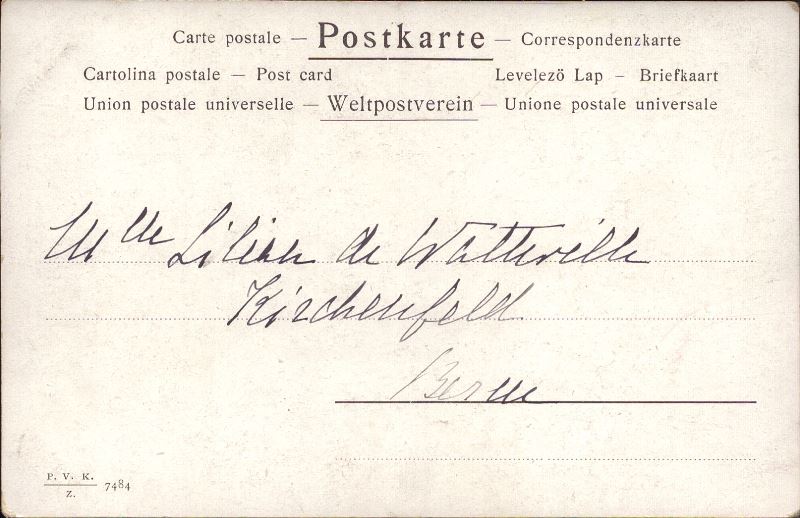 Carte postale — Postkarte — Correspondenzkarte
Cartolina postale — Post card Levelezö Lap – Briefkaart
Union postale universelle — Weltpostverein — Unione postale universale
Mlle Lilian de Watteville
Kirchenfeld
Berne
P. V. K.
Z. 7484